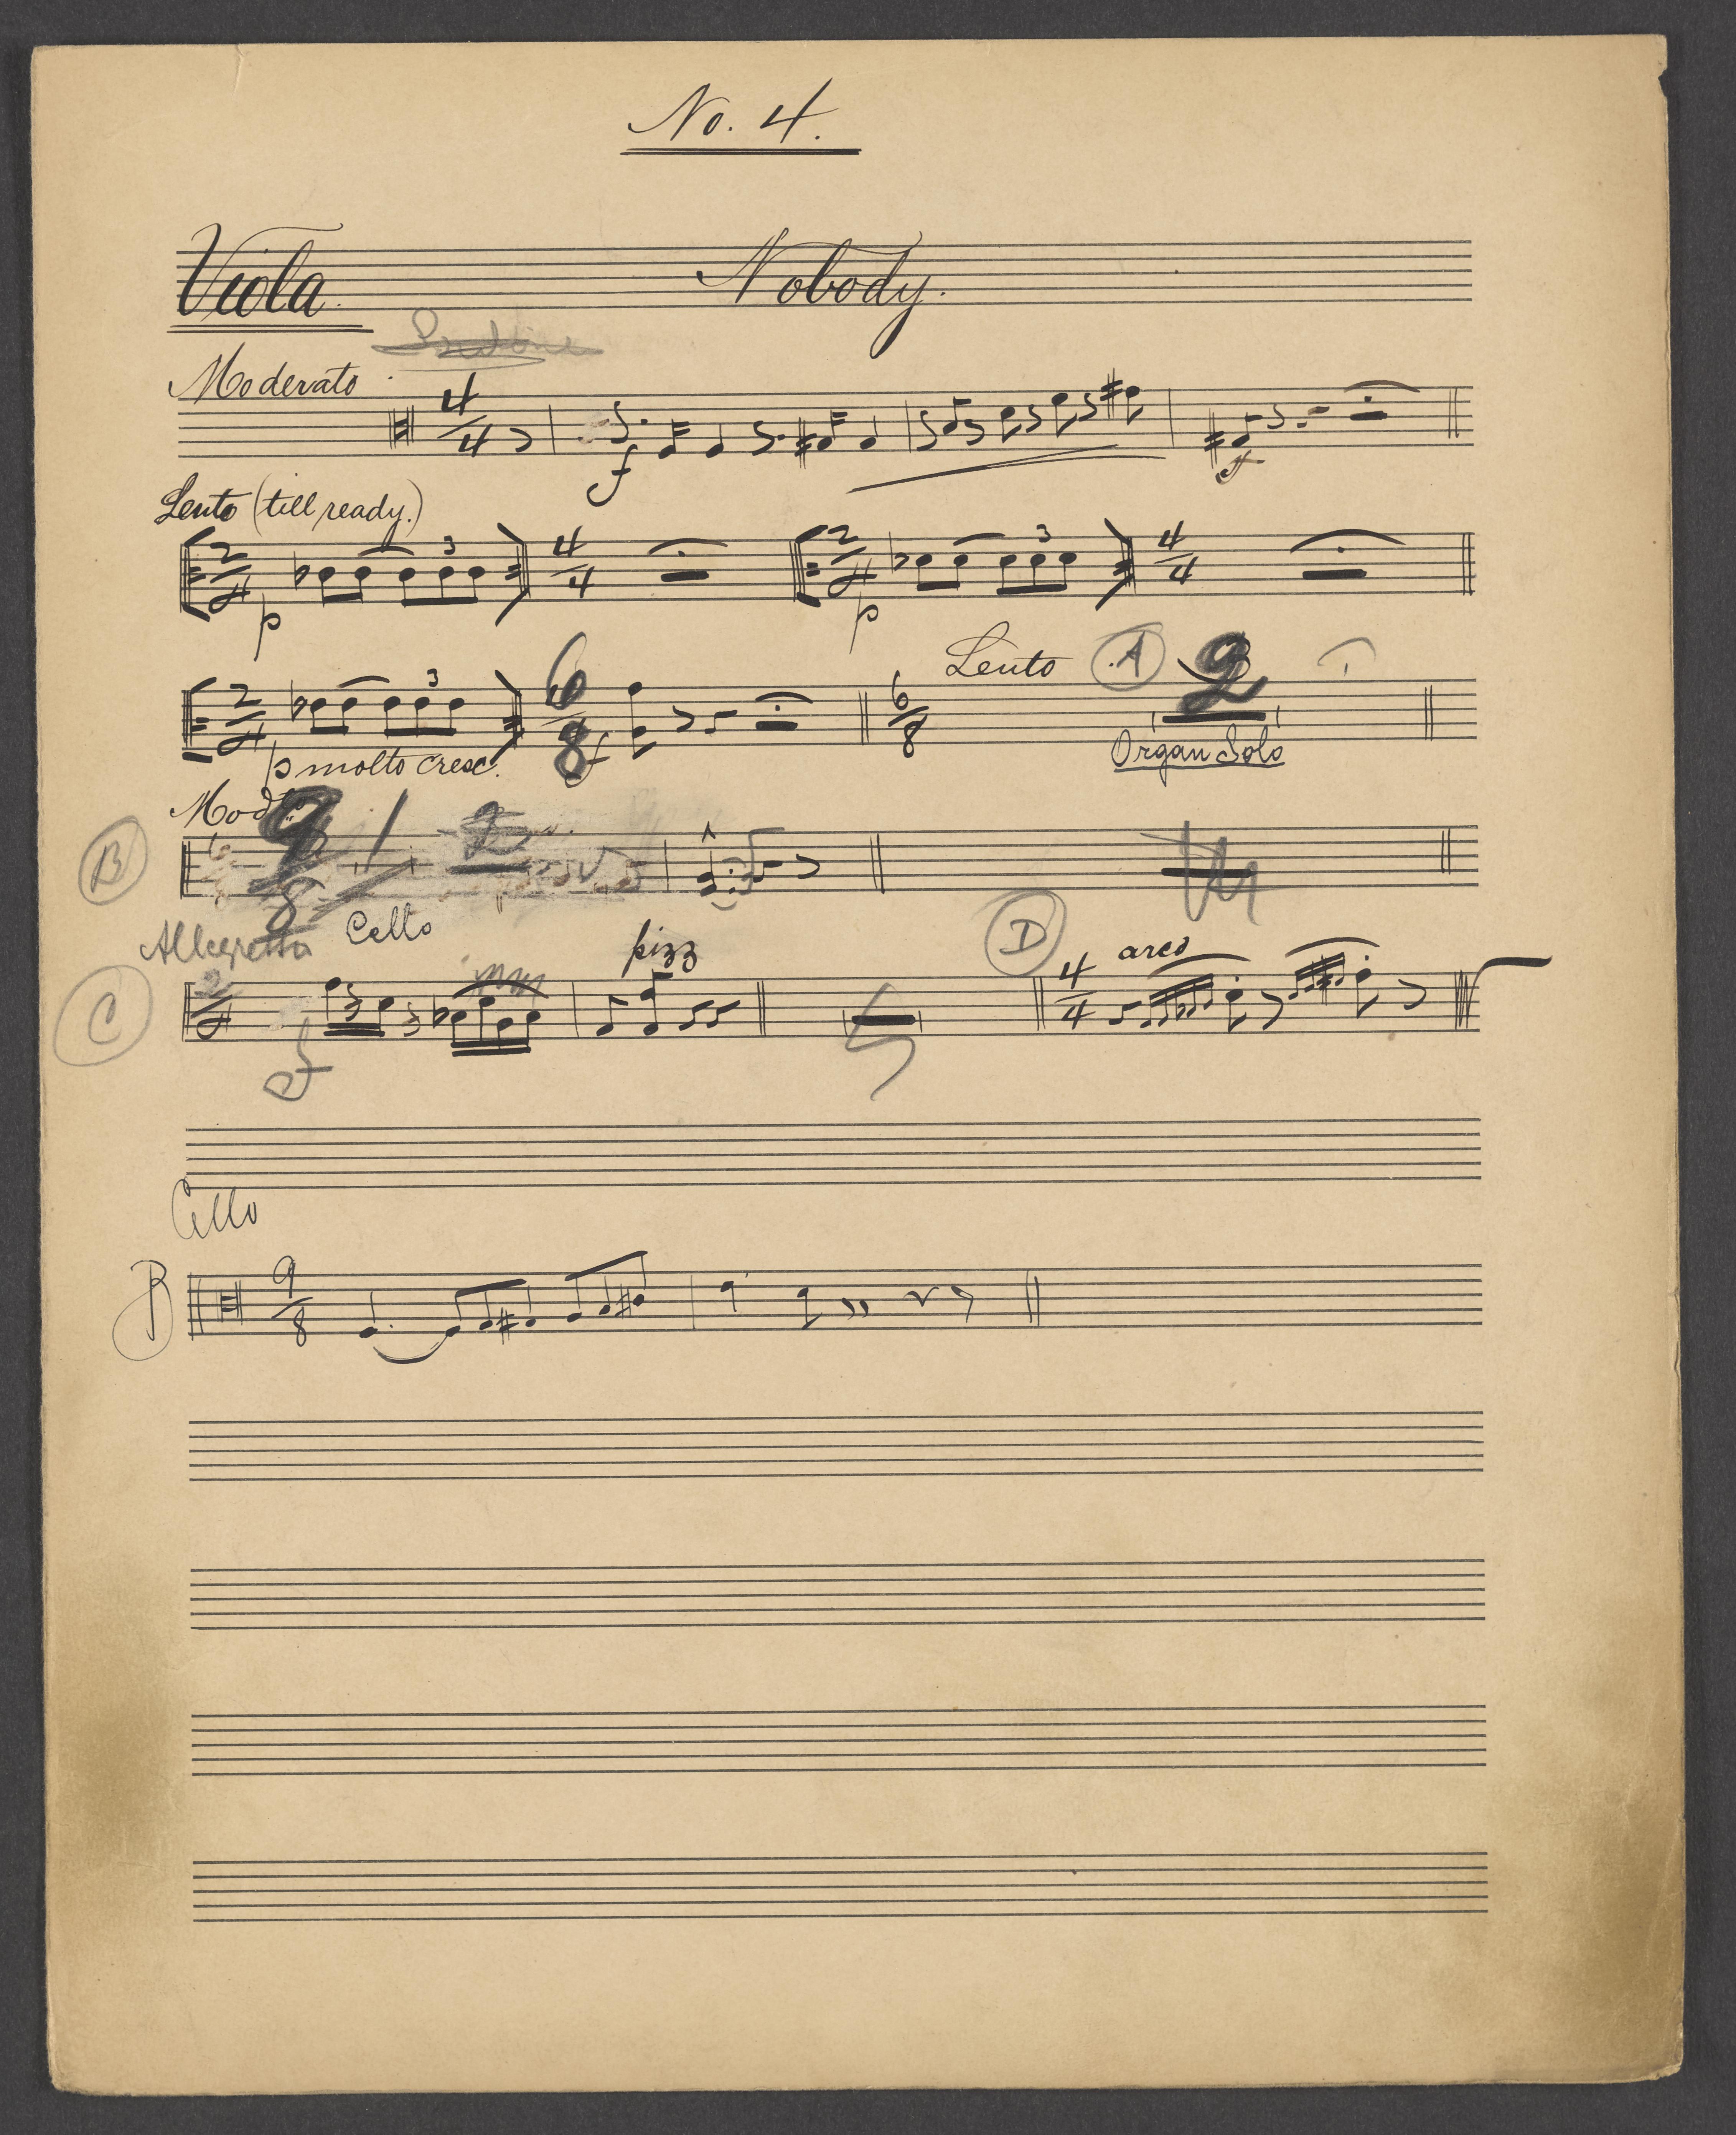 No. 4.
Viola. Nobody.
Moderato
4/4 f
Lento (till ready.)
2/4 p 3 4/4 2/4 p 3 4/4
2/4 p molto cresc. 3 6/8 f 6/8 Lento A 2
Organ Solo
B Modto 9/8 2
Allegretto Cello pizz
C 2/4 f D 4/4 arco
Cello
B 9/8